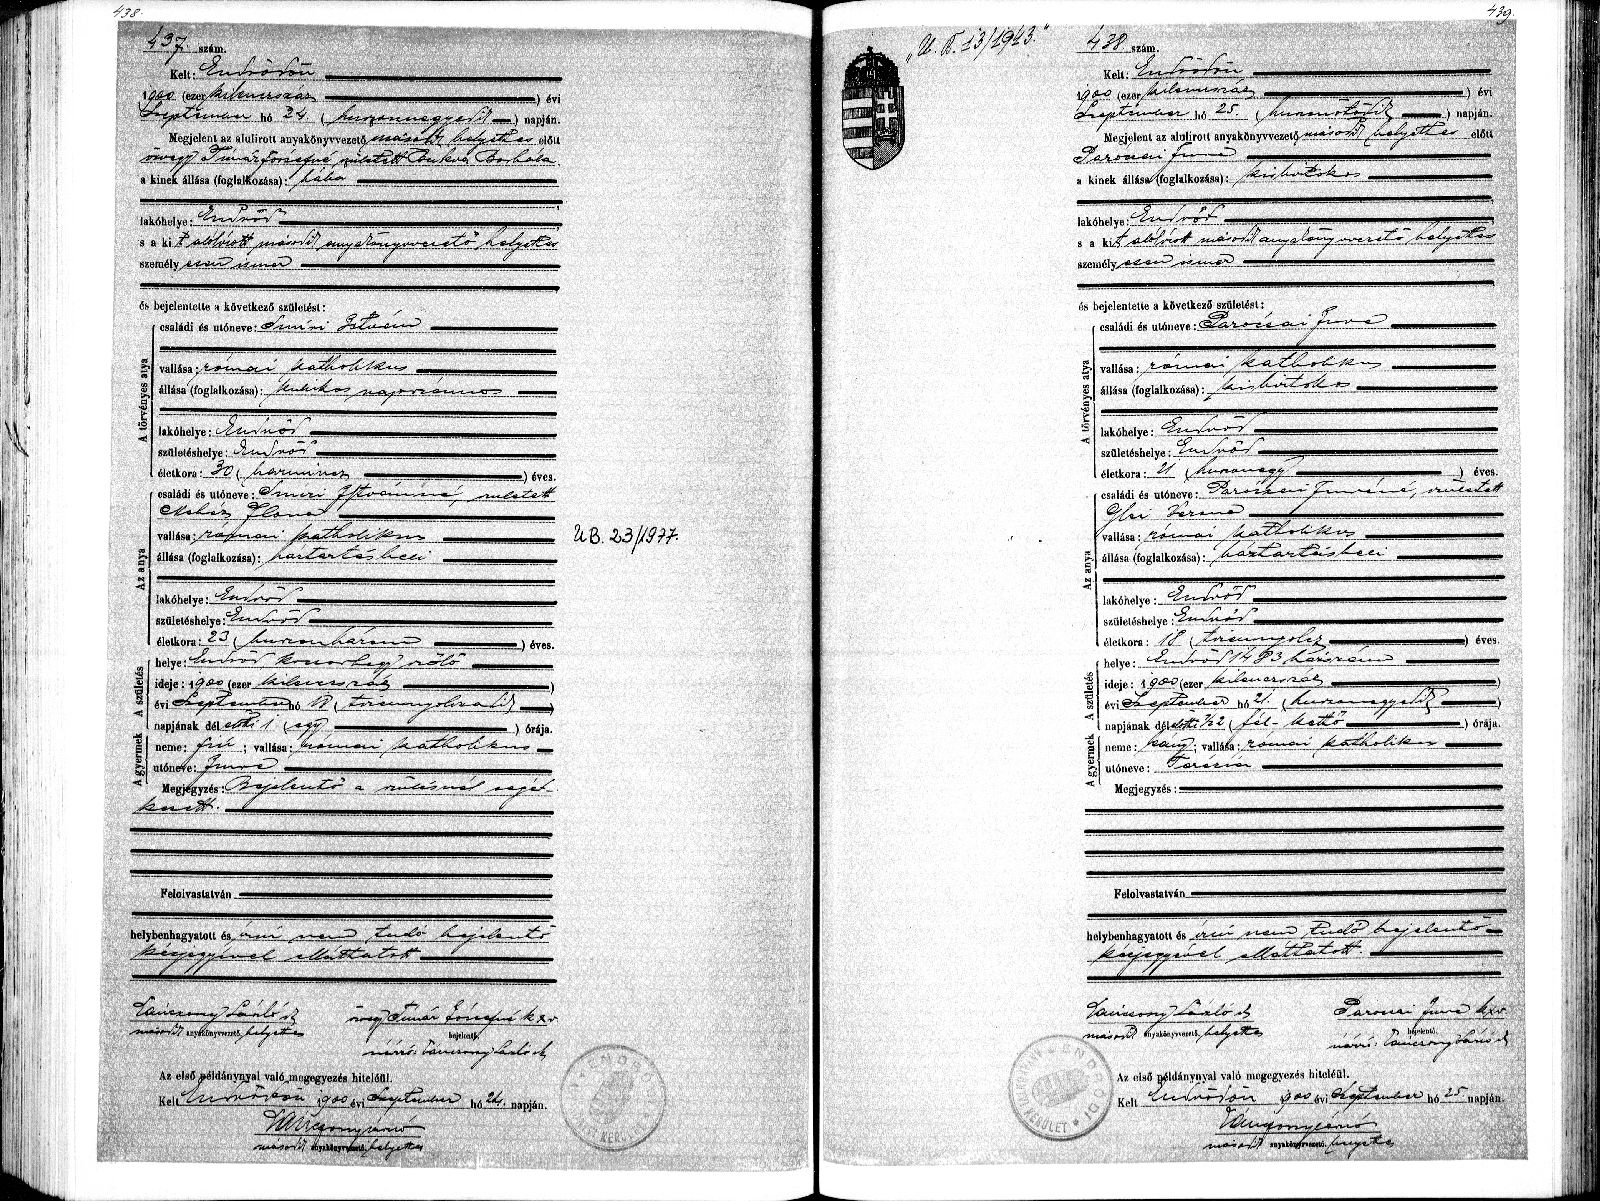 438.
437. szám.
Kelt: Endrődön
1900 (ezer kilencszáz) évi
Szeptember hó 24 (huszonnegyedik) napján.
Megjelent az alulirott anyakönyvvezető másodk helyettes előtt
özvegy Timár Józsefné, született Barbala
a kinek állása (foglalkozása): bába
lakóhelye: Endrőd
s a kit alólírott másodk anyakönyvvezető helyettes
személyesen ismer
és bejelentette a következő születést:
A törvényes atya
családi és utóneve: István
vallása: római katholikus
állása (foglalkozása): napszámos
lakóhelye: Endrőd
születéshelye: Endrőd
életkora: 30 (harmincz) éves.
Az anya
családi és utóneve: Istvánné, született
Ilona
vallása: római katholikus
állása (foglalkozása): háztartásbeli
lakóhelye: Endrőd
születéshelye: Endrőd
életkora: 23 (huszonhárom) éves.
A születés
helye: Endrőd
ideje: 1900 (ezer kilencszáz)
évi Szeptember hó 18 (tizennyolczadik)
napjának dél előtti 1 (egy) órája.
A gyermek
neme: fiú; vallása: római katholikus
utóneve: Imre
Megjegyzés: Bejelentő a szülésnél segéd-
kezett.
Felolvastatván
helybenhagyatott és írni nem tudó bejelentő
kézjegyével elláttatott
Tánczony László
másodk anyakönyvvezető, helyettes
özvegy Timár Józsefné k x v
bejelentő.
Az első példánynyal való megegyezés hiteléül.
Kelt Endrődön 1900 évi Szeptember hó 24. napján.
másodk anyakönyvvezető, helyettes
U B. 23/1977.
439.
"U. B. 13/1943."
438. szám.
Kelt: Endrődön
1900 (ezer kilencszáz) évi
Szeptember hó 25. (huszonötödik) napján.
Megjelent az alulirott anyakönyvvezető másodk helyettes előtt
Paróczai Imre
a kinek állása (foglalkozása): kisbirtokos
lakóhelye: Endrőd
s a kit alólírott másodk anyakönyvvezető helyettes
személyesen ismer
és bejelentette a következő születést:
A törvényes atya
családi és utóneve: Paróczai Imre
vallása: római katholikus
állása (foglalkozása): kisbirtokos
lakóhelye: Endrőd
születéshelye: Endrőd
életkora: 21 (huszonegy) éves.
Az anya
családi és utóneve: Paróczai Imréné, született
vallása: római katholikus
állása (foglalkozása): háztartásbeli
lakóhelye: Endrőd
születéshelye: Endrőd
életkora: 18 (tizennyolcz) éves.
A születés
helye: Endrőd 1483 házszám
ideje: 1900 (ezer kilencszáz)
évi Szeptember hó 21. (huszonegyedik)
napjának dél előtti 1/2 2 (fél-kettő) órája.
A gyermek
neme: leány; vallása: római katholikus
utóneve: Terézia
Megjegyzés:
Felolvastatván
helybenhagyatott és írni nem tudó bejelentő
kézjegyével elláttatott.
Tánczony László
másodk anyakönyvvezető, helyettes
Paróczai Imre k x v
bejelentő.
Az első példánynyal való megegyezés hiteléül.
Kelt Endrődön 1900 évi Szeptember hó 25 napján.
másodk anyakönyvvezető, helyettes